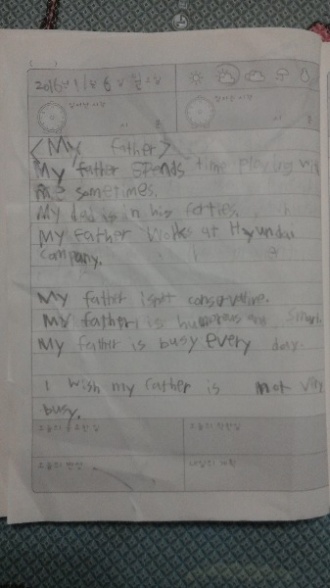 2016년 11월 6일 일요일
<My father>
My father spends time playing with
me sometimes.
My dad is in his forties.
My Father works at Hyundai
company.
My father isn't conservative.
My father is humorous and smart.
My father is busy every day.
I wish my father is not very
busy.
오늘의 중요한일
오늘의 착한일
오늘의 반성
내일의 계획